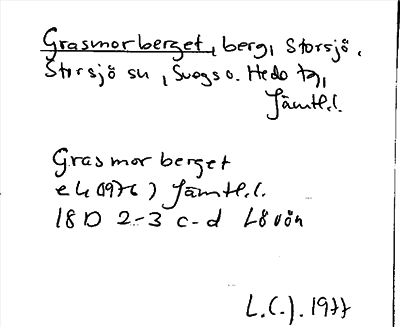 Grasmorberget, berg, Storsjö,
Storsjö sn, Svegs o. Heds tg,
Jämtl.l.
Grasmorberget
ek (1976) Jämtl.l.
18 D 2-3 c-d Lövön
L.C.J. 1977